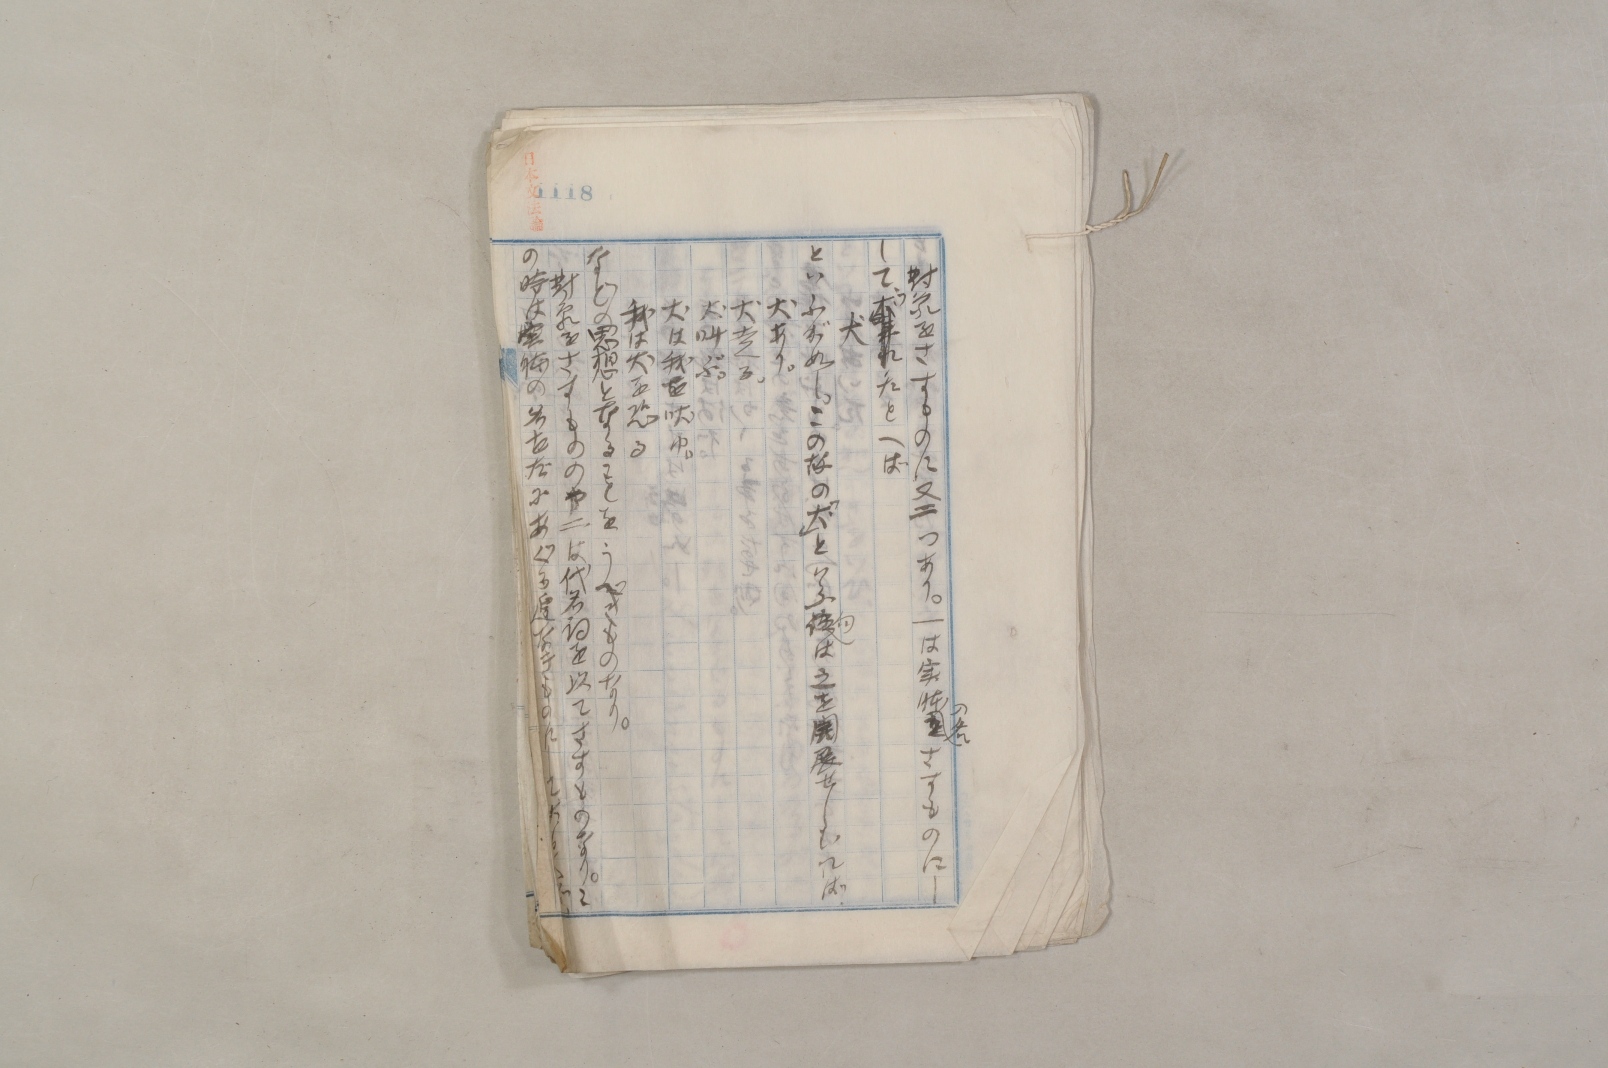 日本文法論
1118
対象をさすものに又二つあり。一は実体の名をさすものにし
て、たとへば
犬
といふが如し。この故の「犬」といふ語は之を開展せしむれば
犬あり。
犬走る。
犬叫ぶ。
犬は我を吠ゆ。
我は犬を恐る
などの思想となることをうべきものなり。
対象をさすものの二は代名詞を以てさすものなり。こ
の時は実物の